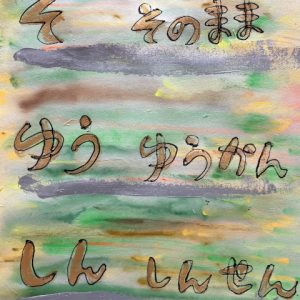 そ そのまま
ゆう ゆうかん
しん しんせん